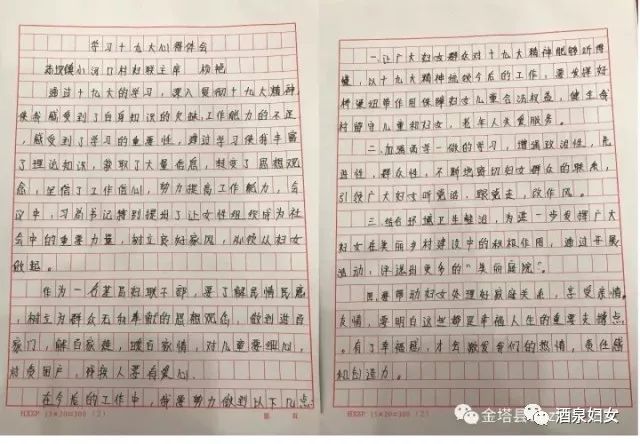 学习十九大心得体会
小河口村妇联主席 杨艳
通过十九大的学习,深入贯彻十九大精神,
使我感受到了自身知识的欠缺,工作能力的不足
,感受到了学习的重要性,通过学习使我丰富
了理论知识,获取了大量信息,转变了思想观
念,坚信了工作信心,努力提高工作能力,会
议中,习总书记特别提到了让女性组织成为社
会中的重要力量,树立良好家风,必须从妇女
做起。
作为一名基层妇联干部,要了解民情民意
,树立为群众无私奉献的思想观念,做到进百
家门,解百家难,暖百家情,对儿童要细心,
对贫困户,残疾人要有爱心。
在今后的工作中,我要努力做到以下几点:
HXSP 15×20=300(2) 第 页
一.让广大妇女群众对十九大精神能够听得
懂,以十九大精神统领今后的工作,要发挥好
桥梁纽带作用保障妇女儿童合法权益,健全我
村留守儿童和妇女,老年人关爱服务。
二.加强两学一做的学习,增强政治性,先
进性,群众性,不断地密切妇女群众的联系,
引领广大妇女听党话,跟党走,改作风。
三.结合环境卫生整治,为进一步发挥广大
妇女在美丽乡村建设中的积极作用,通过开展
活动,评选出更多的“美丽庭院”。
四.要带动妇女处理好家庭关系,享受亲情
友情,要明白这些都是幸福人生的重要支撑点
。有了幸福感,才会激发我们的热情,责任感
和创造力。
HXSP 15×20=300(2)
金塔县
酒泉妇女